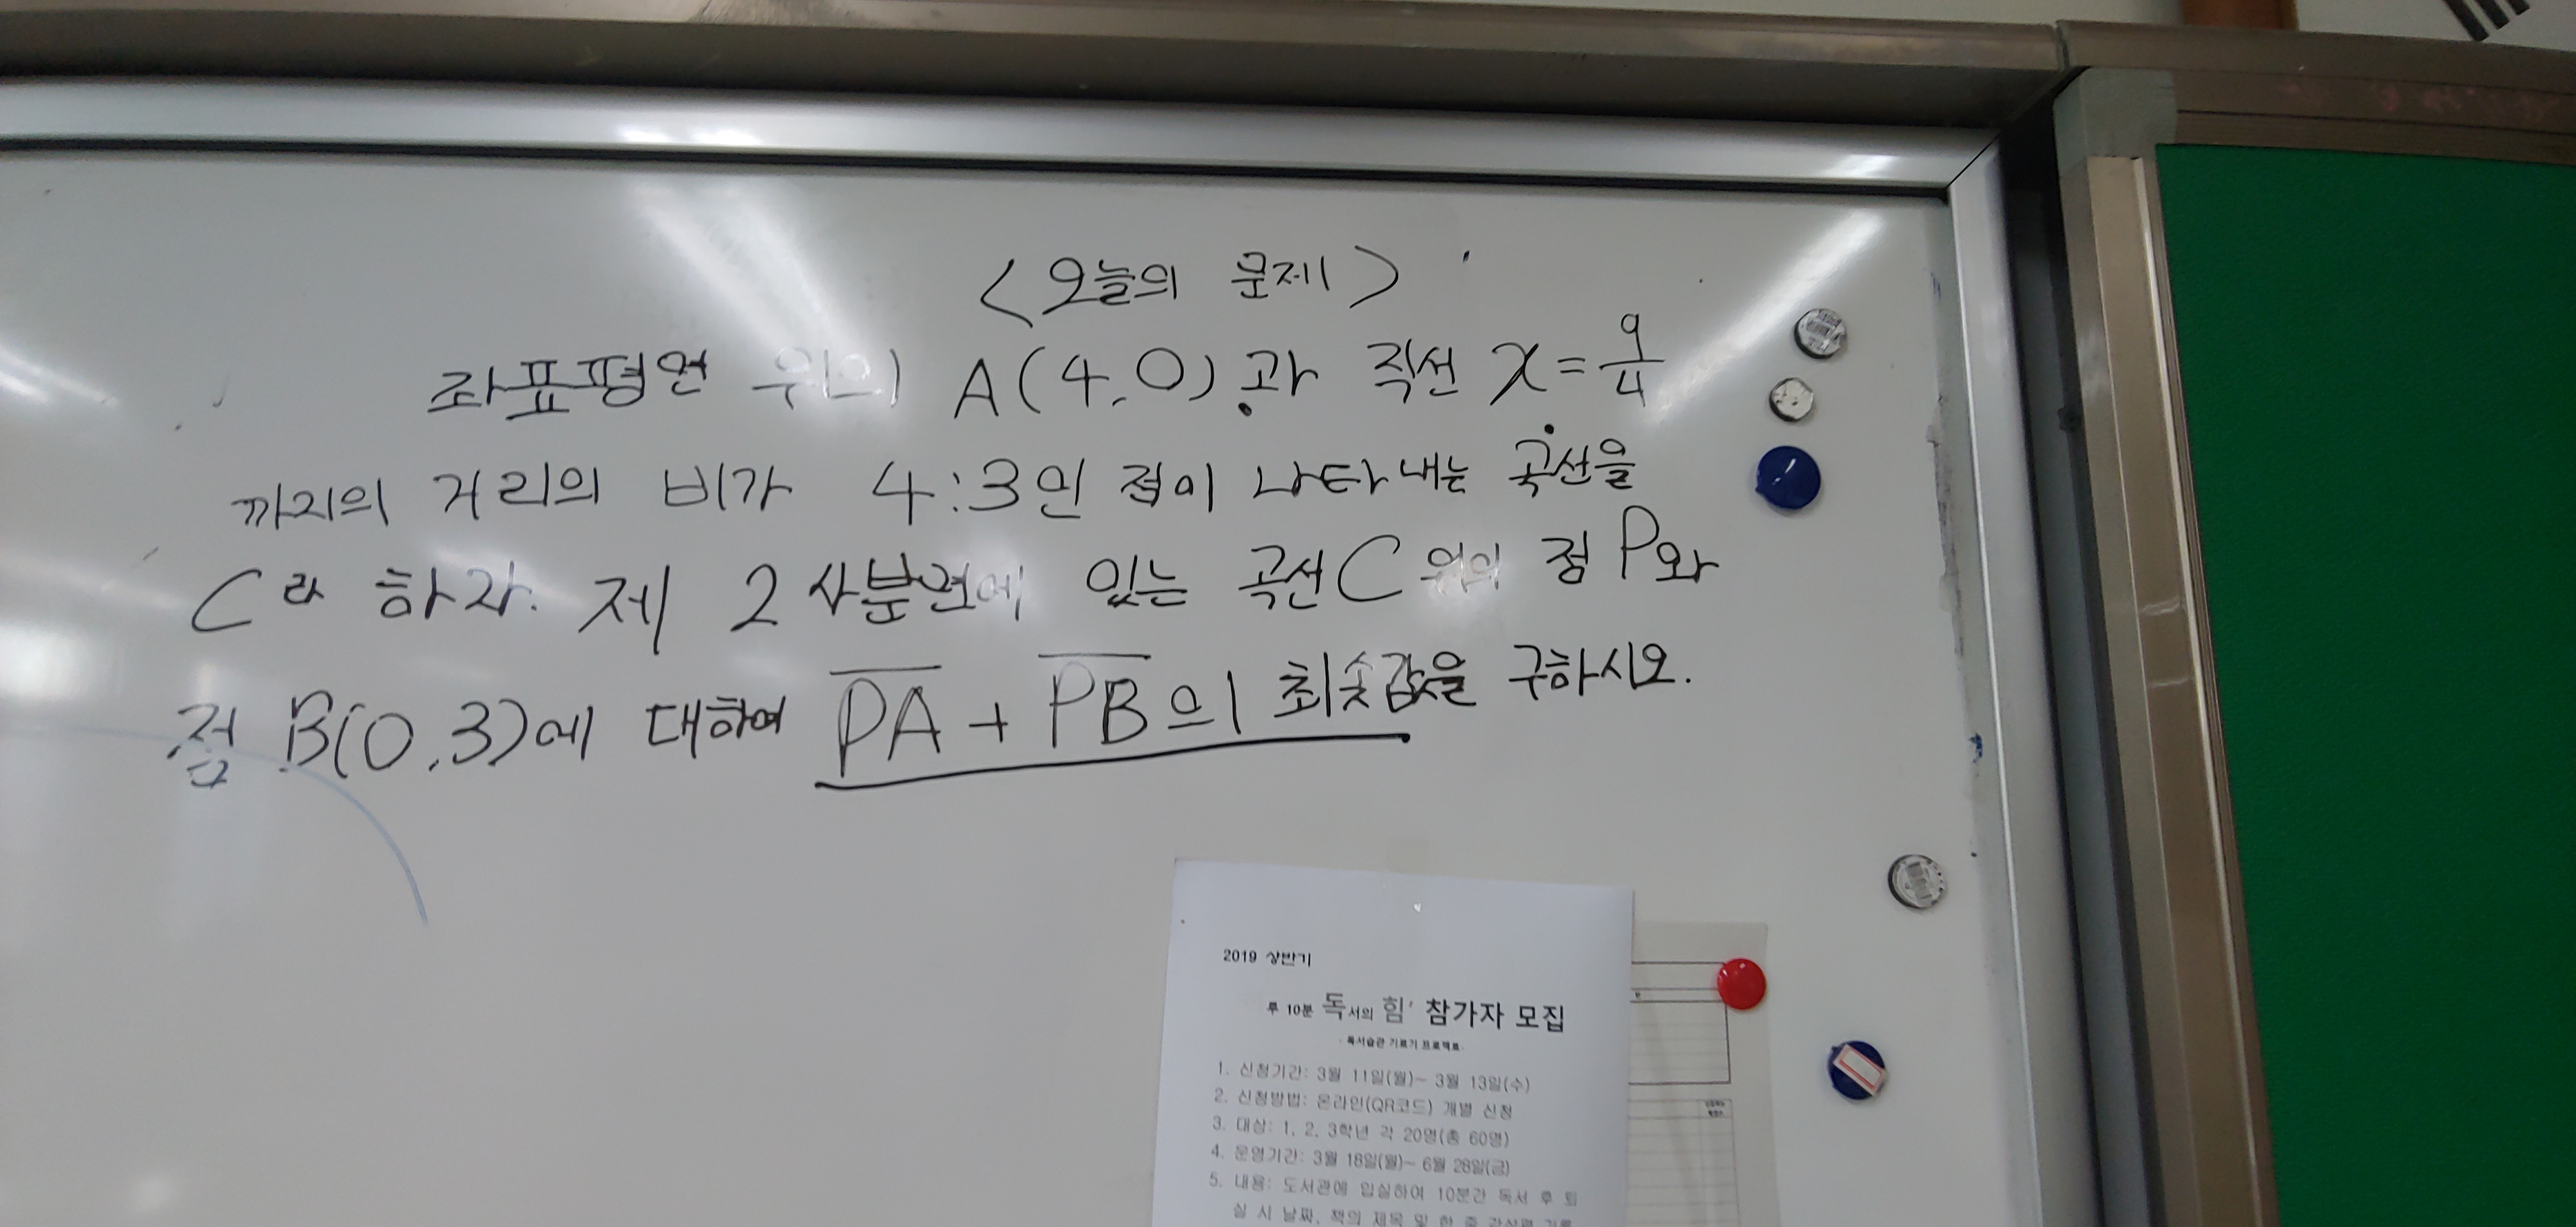 <오늘의 문제>
좌표평면 위의 A(4,0)과 직선 x=9/4
까지의 거리의 비가 4:3인 점이 나타내는 곡선을
C라 하자. 제 2사분면에 있는 곡선 C 위의 점 P와
점 B(0,3)에 대하여 P̅A̅ + P̅B̅의 최솟값을 구하시오.
2019 상반기
루 10분 독서의 힘' 참가자 모집
- 독서습관 기르기 프로젝트-
1. 신청기간: 3월 11일(월)~ 3월 13일(수)
2. 신청방법: 온라인(QR코드) 개별 신청
3. 대상: 1, 2, 3학년 각 20명(총 60명)
4. 운영기간: 3월 18일(월)~ 6월 28일(금)
5. 내용: 도서관에 입실하여 10분간 독서 후 퇴
실 시 날짜, 책의 제목 및 한 줄